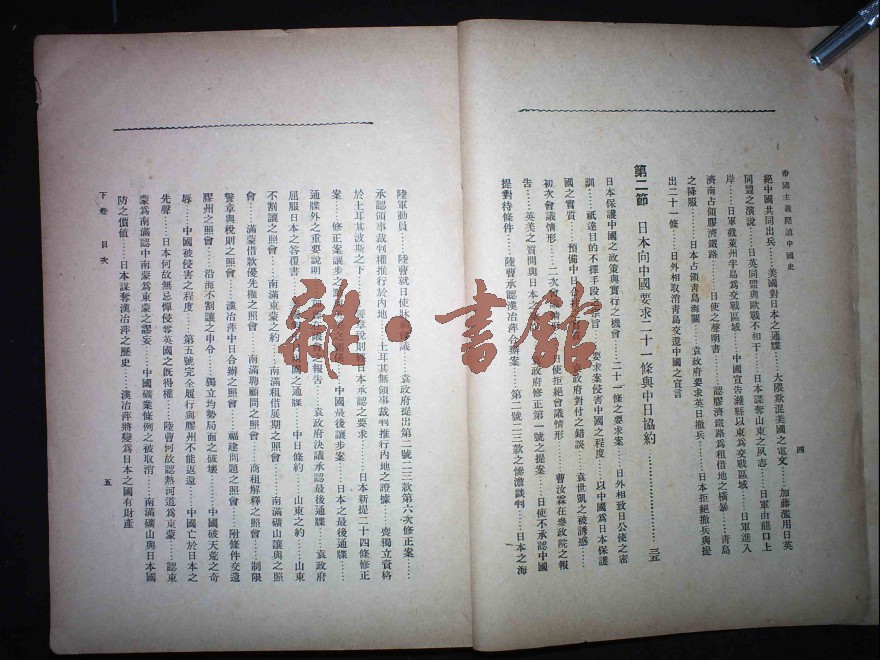 帝國主義壓迫中國史
四
絕中國共同出兵……美國對日本之通牒……大隈欺混美國之電文……加藤濫用日英
同盟之演說……日英同盟與歐戰不相干……日本謀奪山東之夙志……日軍由龍口上
岸……日軍截萊州半島爲交戰區域……中國宣告濰縣以東爲交戰區域……日軍進入
濟南占領膠濟鐵路……日使之聲明書……認膠濟鐵路爲租借地之橫暴……靑島
之降服……日本占領靑島海關……袁政府要求英日撤兵……日本拒絕撤兵與提
出二十一條……日外相取消靑島交還中國之宣言
第二節 日本向中國要求二十一條與中日協約……三五
日本保護中國之政策與實行之機會……二十一條之要求案……日外相致日公使之密
訓……祇達目的不擇手段之宗旨……要求案侵害中國之程度……以中國爲日本保護
國之實質……預備中日 袁政府對付之錯誤……袁世凱之被誘惑……
初次會議情形……二次會議情形……日使拒絕會議情形……曹汝霖在參政院之報
告……英美之質問與日本之 政府修正第一號之提案……日使不承認中國
提對待條件……陸曹承認漢冶萍合辦案……第二號二三款之慘澹談判……日本之海
陸軍動員……陸曹就日使牀前會議……袁政府提出第二號二三款第六次修正案……
承認領事裁判權推行於內地……土耳其無領事裁判權推行內地之證據……喪獨立資格
於土耳其波斯之下 警章稅則經日本承認之要求……日本新提二十四條修正
案……修正案讓步之 關係……中國最後讓步案……日本之最後通牒……
通牒外之重要說明 議之報告……袁政府決議承認最後通牒……袁政府
屈服日本之答覆書 國之通牒……中日條約……山東之約……山東
不割讓之照會……南滿東蒙之約……南滿租借展期之照會……南滿礦山讓與之照
會……滿蒙借欵優先權之照會……南滿聘顧問之照會……商租解釋之照會……制限
警章與稅則之照會……漢冶萍中日合辦之照會……福建問題之照會……附條件交還
膠州之照會……沿海不割讓之申令……獨立均勢局面之破壞……中國破天荒之奇
辱……中國被侵害之程度……第五號完全履行與膠州不能返還……中國亡於日本之
先聲……日本何故無忌憚侵害英國之旣得權……陸曹何故認熱河道爲東蒙……認東
蒙爲南滿認中南蒙爲東蒙之謬妄……中國礦業條例之被取消……南滿礦山與日本國
防之價值……日本謀奪漢冶萍之歷史……漢冶萍將變爲日本之國有財產
下卷 目次
五
雜·書館